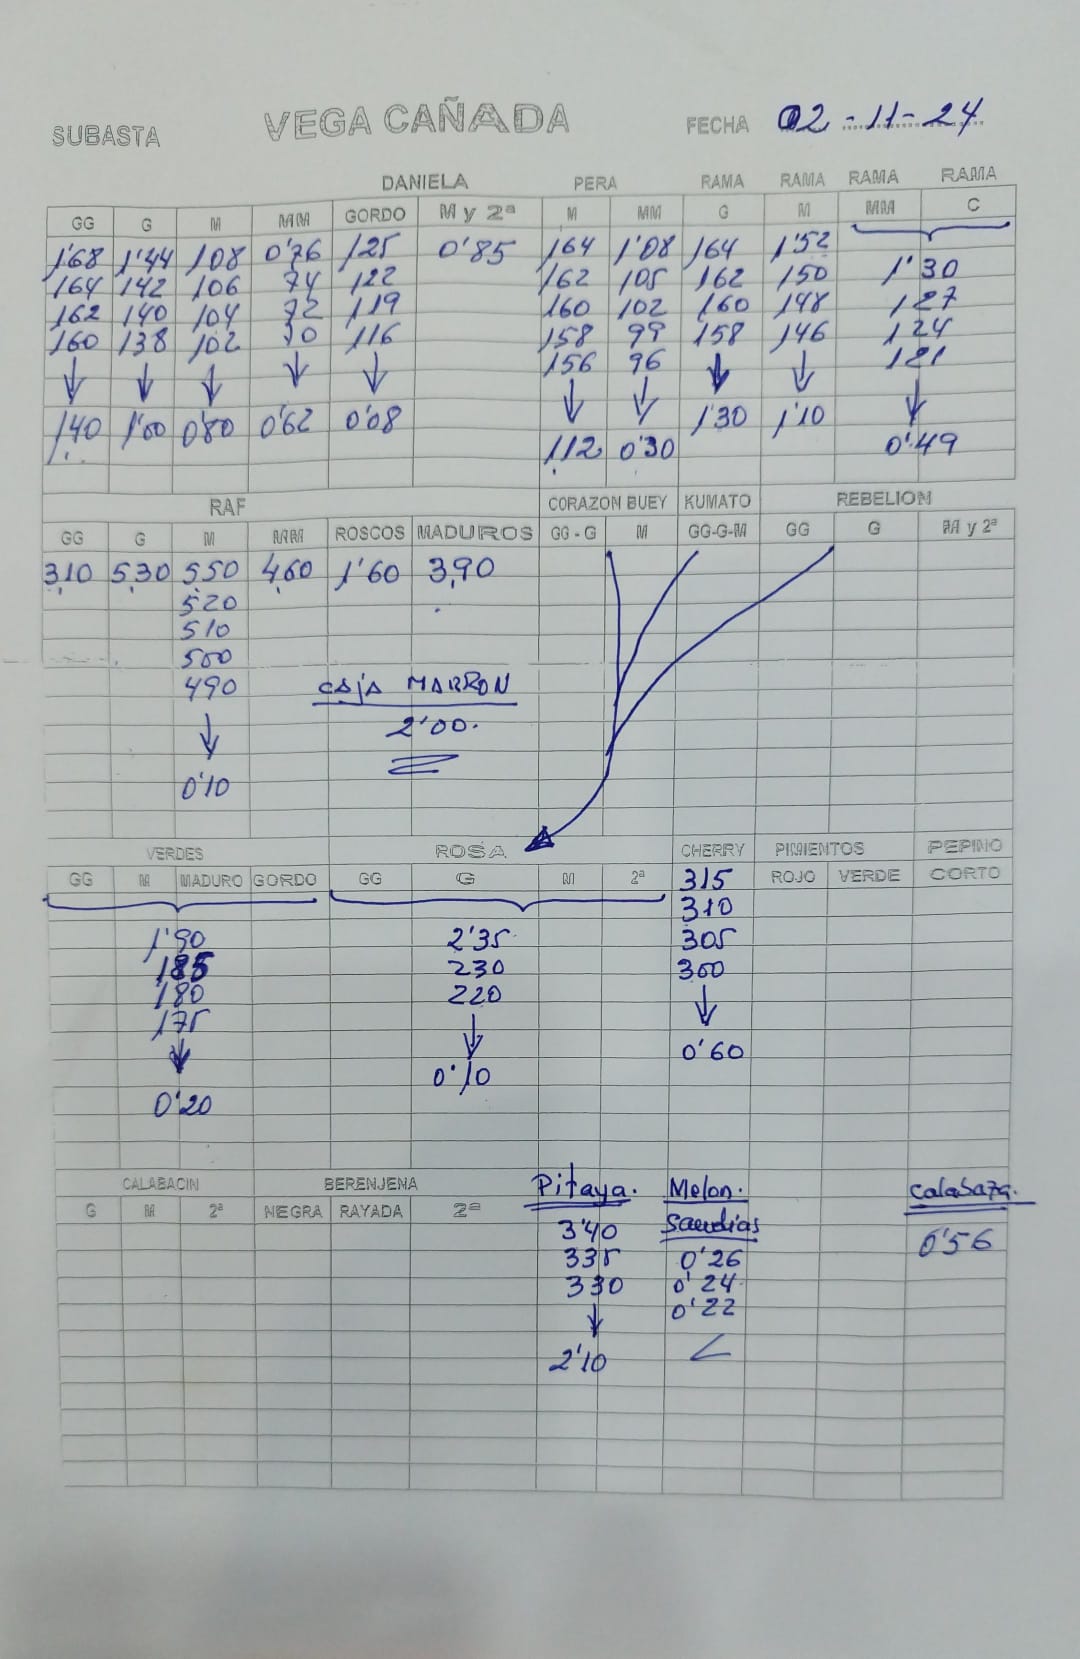 SUBASTA VEGA CAÑADA FECHA 02-11-24
DANIELA PERA RAMA RAMA RAMA RAMA
GG G M MM GORDO M y 2ª M MM G M MM C
1'68 1'44 108 0'76 125 0'85 164 1'08 164 1'52
164 142 106 74 122 162 105 162 150 1'30
162 140 104 72 119 160 102 160 148 127
160 138 102 70 116 158 99 158 146 124
156 96 121
140 1'00 0'80 0'62 0'08 1'30 1'10
112 0'30 0'49
RAF CORAZON BUEY KUMATO REBELION
GG G M MM ROSCOS MADUROS GG - G M GG-G-M GG G M y 2ª
3,10 5,30 5,50 4,60 1'60 3,90
520
510
500
490 CAJA MARRON
2'00.
0'10
VERDES ROSA CHERRY PIMIENTOS PEPINO
GG M MADURO GORDO GG G M 2ª 315 ROJO VERDE CORTO
310
1'90 2'35 305
185 230 300
180 220
175
0'60
0'10
0'20
CALABACIN BERENJENA Pitaya. Melon. Calabaza.
G M 2ª NEGRA RAYADA 2ª 3'40 Sandias 0'56
335 0'26
330 0'24
0'22
2'10